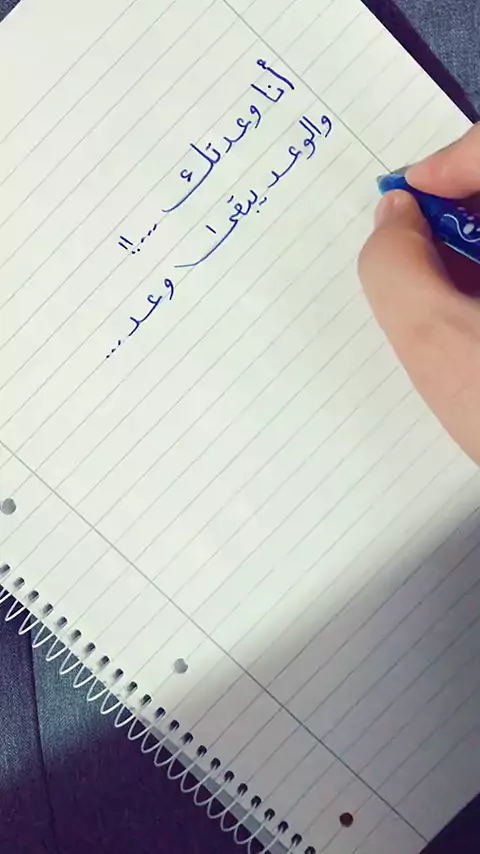 أنا وعدتك ....!!
والوعد يبقىٰ وعد...